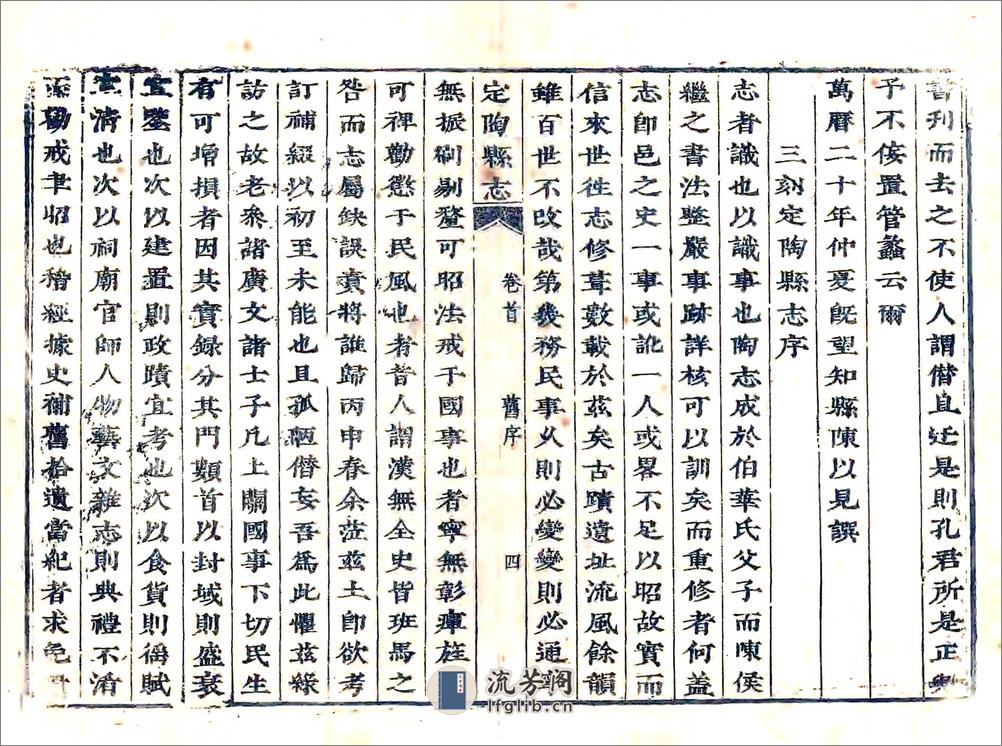 書刊而去之不使人謂僭且迂是則孔君所是正與
予不佞置管蠡云爾
萬曆二十年仲夏旣望知縣陳以見譔
三刻定陶縣志序
志者識也以識事也陶志成於伯華氏父子而陳侯
繼之書法整嚴事跡詳核可以訓矣而重修者何蓋
志卽邑之史一事或訛一人或畧不足以昭故實而
信來世徃志修葺數載於茲矣古蹟遺址流風餘韻
雖百世不攺哉第幾務民事久則必變變則必通
定陶縣志 卷首 舊序 四
無振刷剔釐可昭法戒于國事也者寧無彰癉旌
可裨勸懲于民風也者昔人謂漢無全史皆班馬之
咎而志屬缺誤責將誰歸丙申春余蒞茲土卽欲考
訂補綴以初至未能也且孤陋僭妄吾爲此懼茲緣
訪之故老叅諸廣文諸士子凡上關國事下切民生
有可增損者因其實録分其門類首以封域則盛衰
宜鑒也次以建置則政蹟宜考也次以食貨則徭賦
宜清也次以祠廟官師人物藝文雜志則典禮不淆
勸戒聿昭也稽經據史補舊拾遺當紀者求免
流芳閣
lfglib.cn